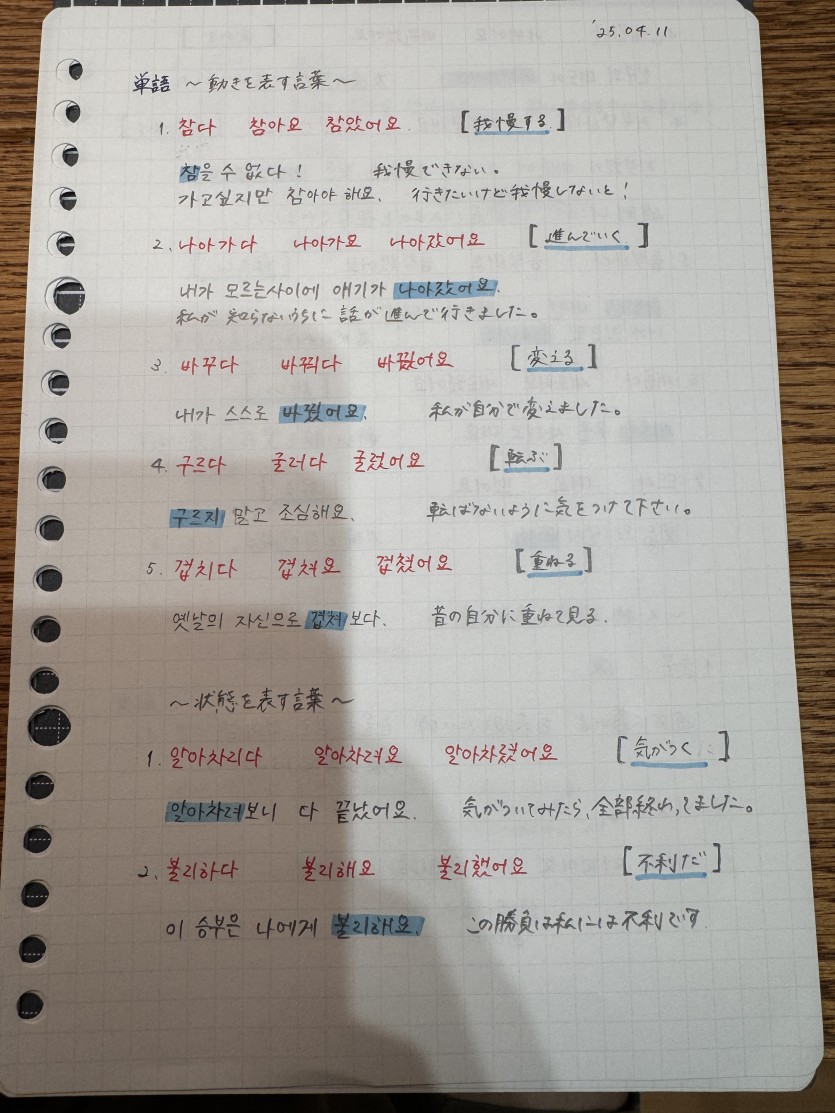 '25.04.11
単語 〜動きを表す言葉〜
1. 참다 참아요 참았어요 [我慢する]
참을 수 없다! 我慢できない。
가고싶지만 참아야 해요. 行きたいけど我慢しないと!
2. 나아가다 나아가요 나아갔어요 [進んでいく]
내가 모르는사이에 얘기가 나아갔어요.
私が知らないうちに話が進んで行きました。
3. 바꾸다 바꿔다 바꿨어요 [変える]
내가 스스로 바꿨어요. 私が自分で変えました。
4. 구르다 굴러다 굴렀어요 [転ぶ]
구르지 말고 조심해요. 転ばないように気をつけて下さい。
5. 겹치다 겹쳐요 겹쳤어요 [重ねる]
옛날의 자신으로 겹쳐보다. 昔の自分に重ねて見る.
〜状態を表す言葉〜
1. 알아차리다 알아차려요 알아차렸어요 [気がつく]
알아차려보니 다 끝났어요. 気がついてみたら、全部終わってました。
2. 불리하다 불리해요 불리했어요 [不利だ]
이 승부은 나에게 불리해요. この勝負は私には不利です.